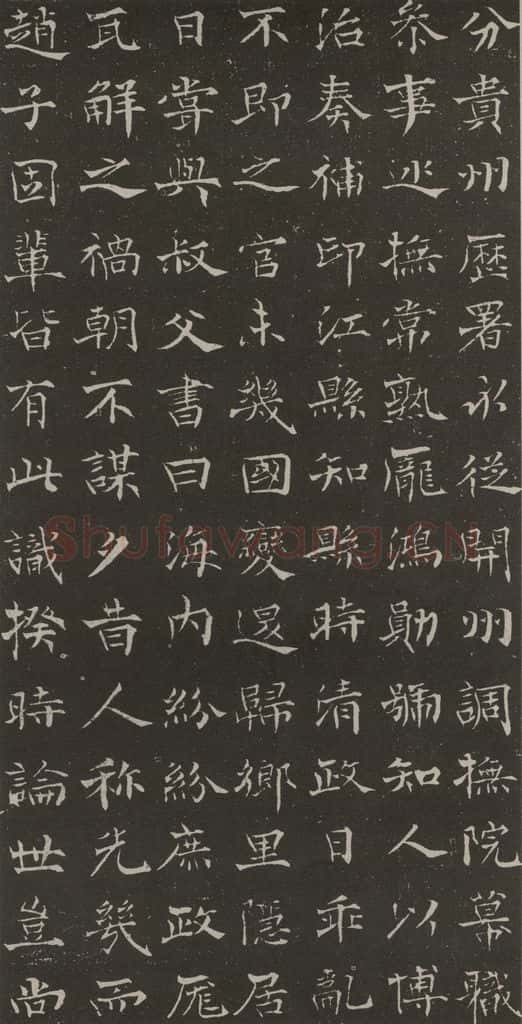 分貴州歷署永從開州調撫院幕職
叅事巡撫常熟龐鴻勛號知人以博
治奏補印江縣知縣時清政日乖亂
不即之官未幾國變還歸鄉里隱居
日嘗與叔父書曰海內紛紛庶政厖
瓦解之禍朝不謀夕昔人称先幾而
趙子固輩皆有此識揆時論世豈尚
Shufawang.CN